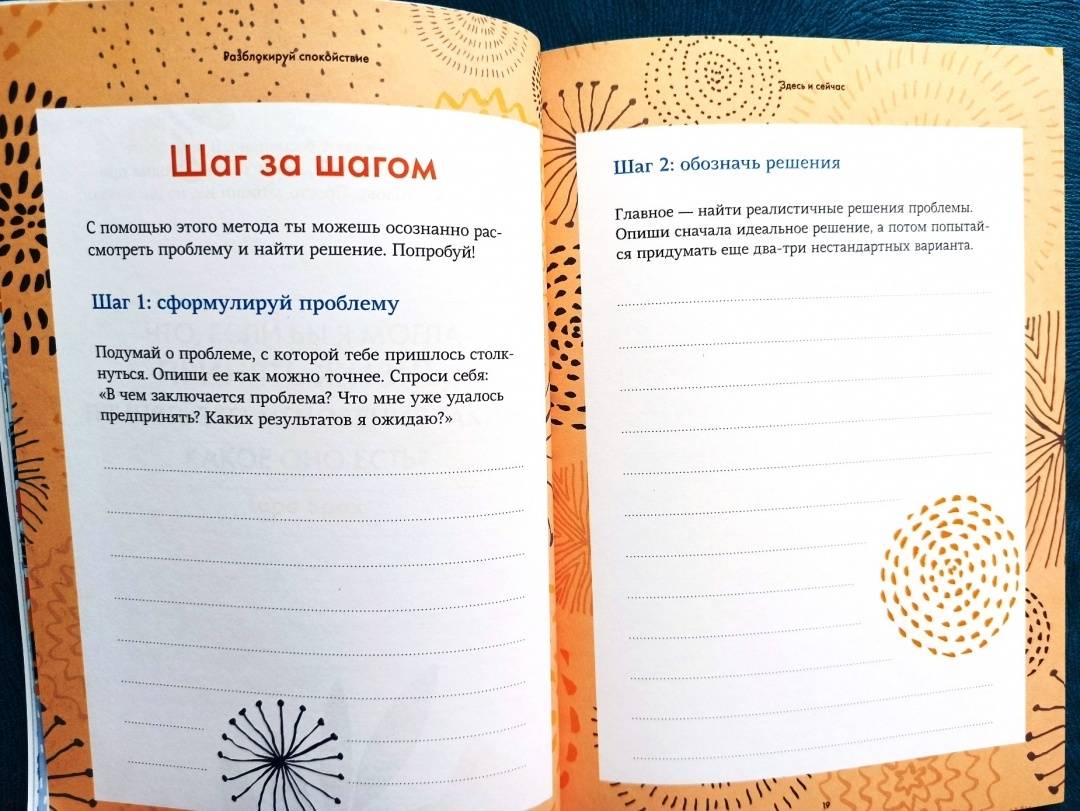 Разблокируй спокойствие
Шаг за шагом
С помощью этого метода ты можешь осознанно рас-
смотреть проблему и найти решение. Попробуй!
Шаг 1: сформулируй проблему
Подумай о проблеме, с которой тебе пришлось столк-
нуться. Опиши ее как можно точнее. Спроси себя:
«В чем заключается проблема? Что мне уже удалось
предпринять? Каких результатов я ожидаю?»
Здесь и сейчас
Шаг 2: обозначь решения
Главное — найти реалистичные решения проблемы.
Опиши сначала идеальное решение, а потом попытай-
ся придумать еще два-три нестандартных варианта.
19